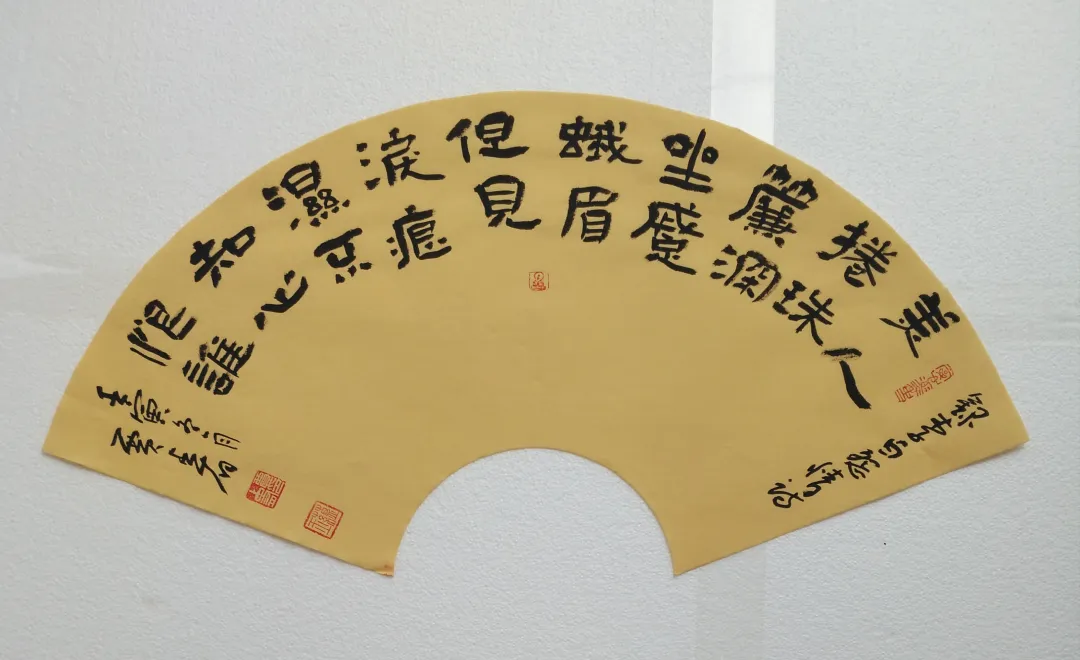 錄李白怨情詩
美人
捲珠
簾深
坐蹙
蛾眉
但見
淚痕
濕不
知心
恨誰